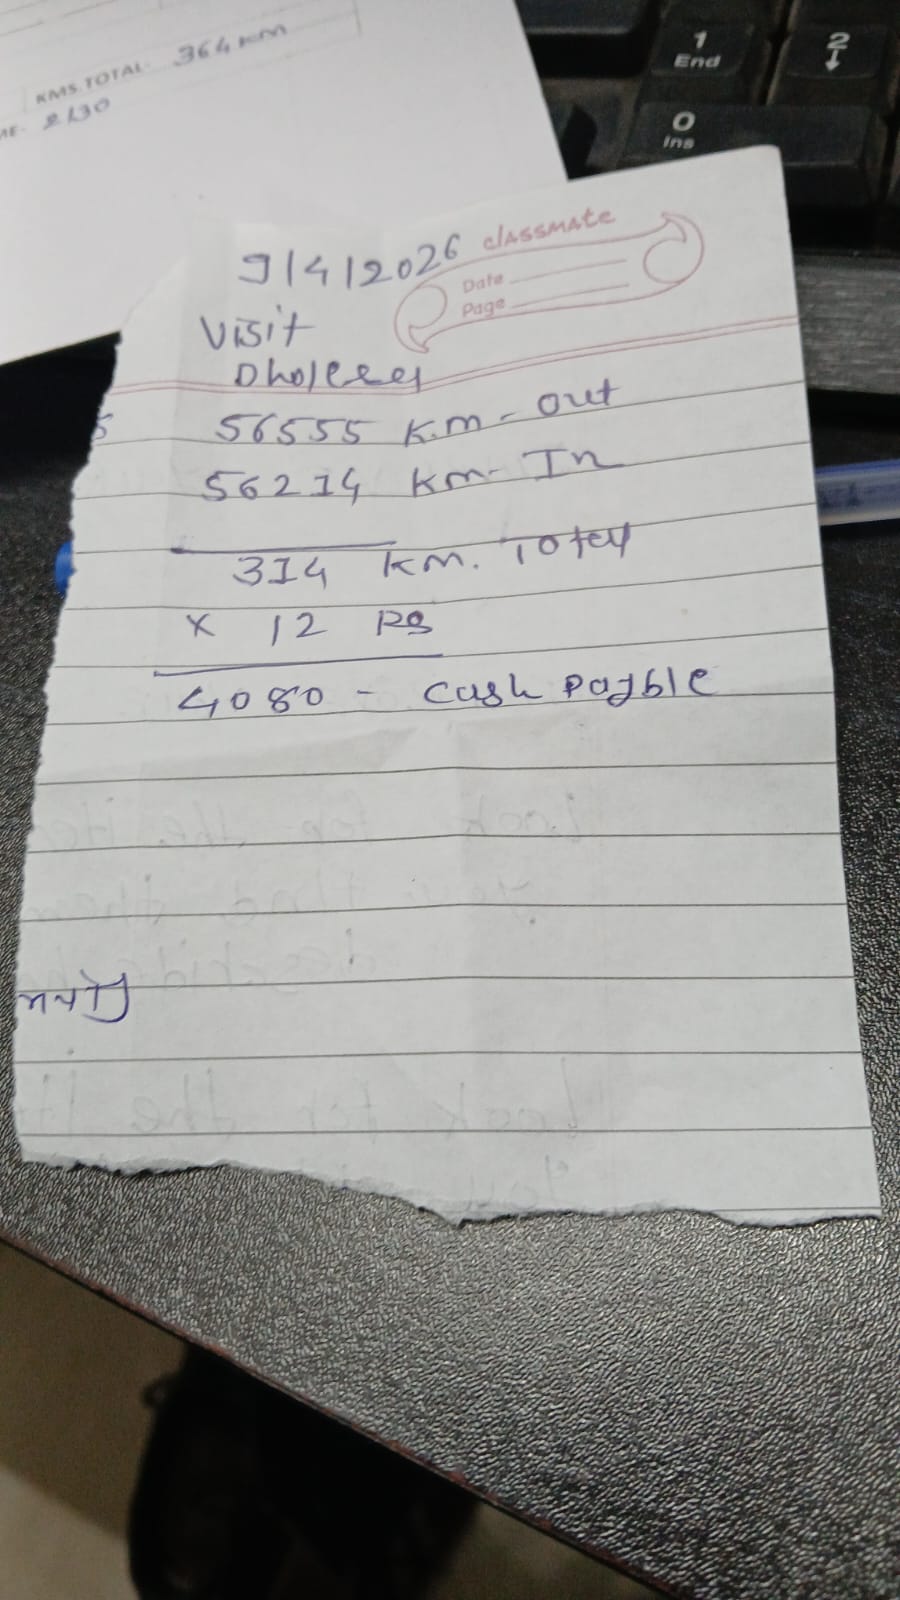 KMS.TOTAL- 364 KM
ME- 2130
1
End
2
0
Ins
classmate
Date
Page
9/4/2026
Visit
Dholera
5
56555 K.m - out
56214 Km- In
314 Km. Total
x 12 RS
4080 - Cash Payble